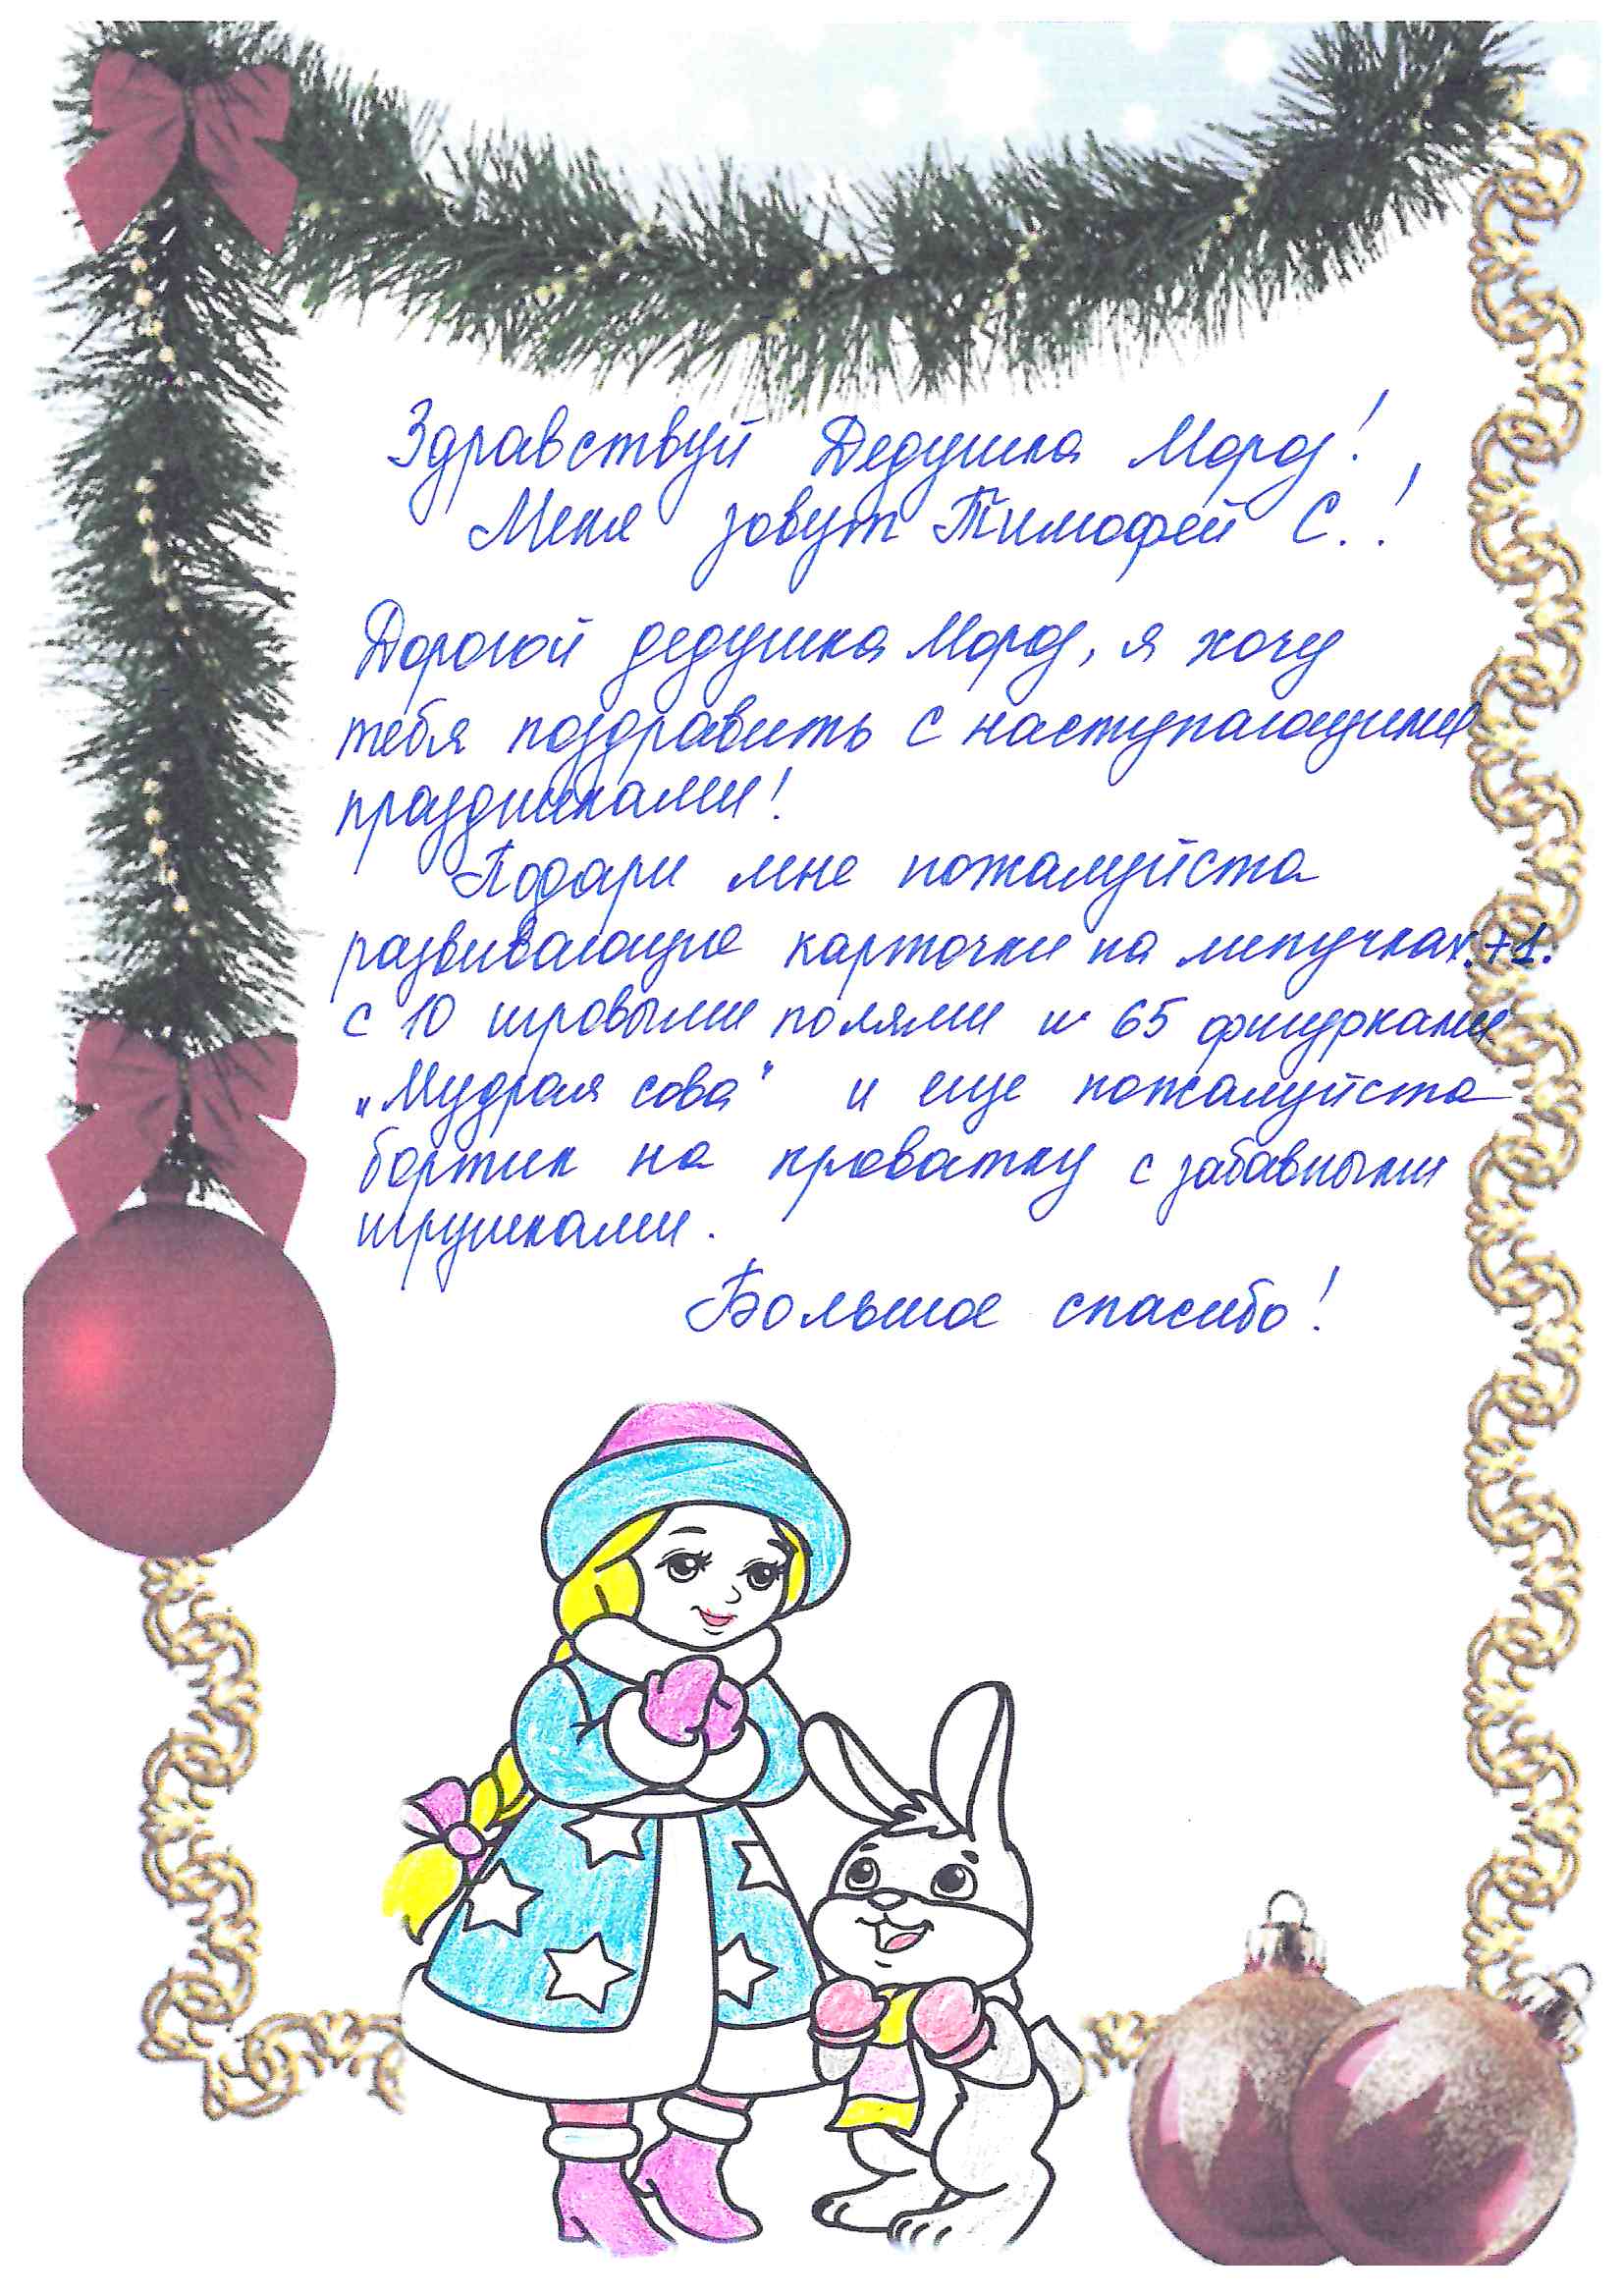 Здравствуй Дедушка Мороз!
Меня зовут Тимофей С.!
Дорогой дедушка Мороз, я хочу
тебя поздравить с наступающими
праздниками!
Подари мне пожалуйста
развивающие карточки на липучках.+1.
с 10 игровыми полями и 65 фигурками
„Мудрая сова" и еще пожалуйста
бортик на кроватку с забавными
игрушками.
Большое спасибо!